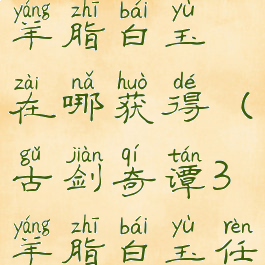 yáng zhī bái yù
羊脂白玉
zài nǎ huò dé
在哪获得（
gǔ jiàn qí tán
古剑奇谭3
yáng zhī bái yù rèn
羊脂白玉任